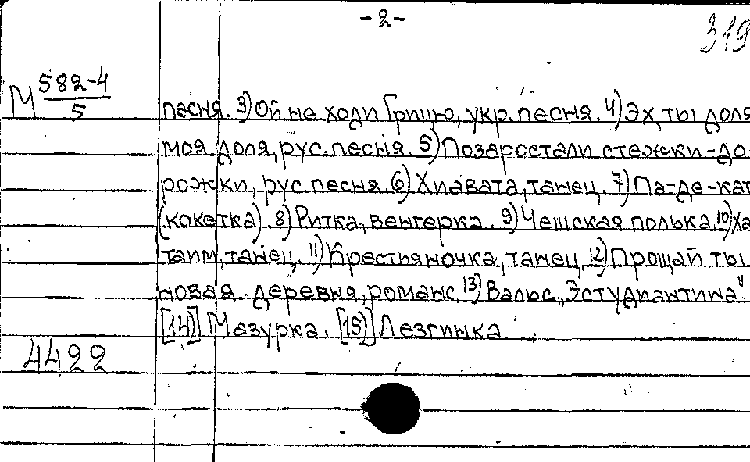 -2-
319
М 582-4
5
песня. 3) Ой не ходи Грицю, укр. песня. 4) Эх, ты доля
моя доля, рус. песня. 5) Позаростали стежки-до-
рожки, рус. песня. 6) Хиавата, танец. 7) Па-де-кат
(кокетка). 8) Ритка, венгерка. 9) Чешская полька. 10) Ха
таим, танец. 11) Крестьяночка, танец. 12) Прощай ты
новая деревня, романс. 13) Вальс „Эстудиантина"
[14)] Мазурка. [15)] Лезгинка.
4422